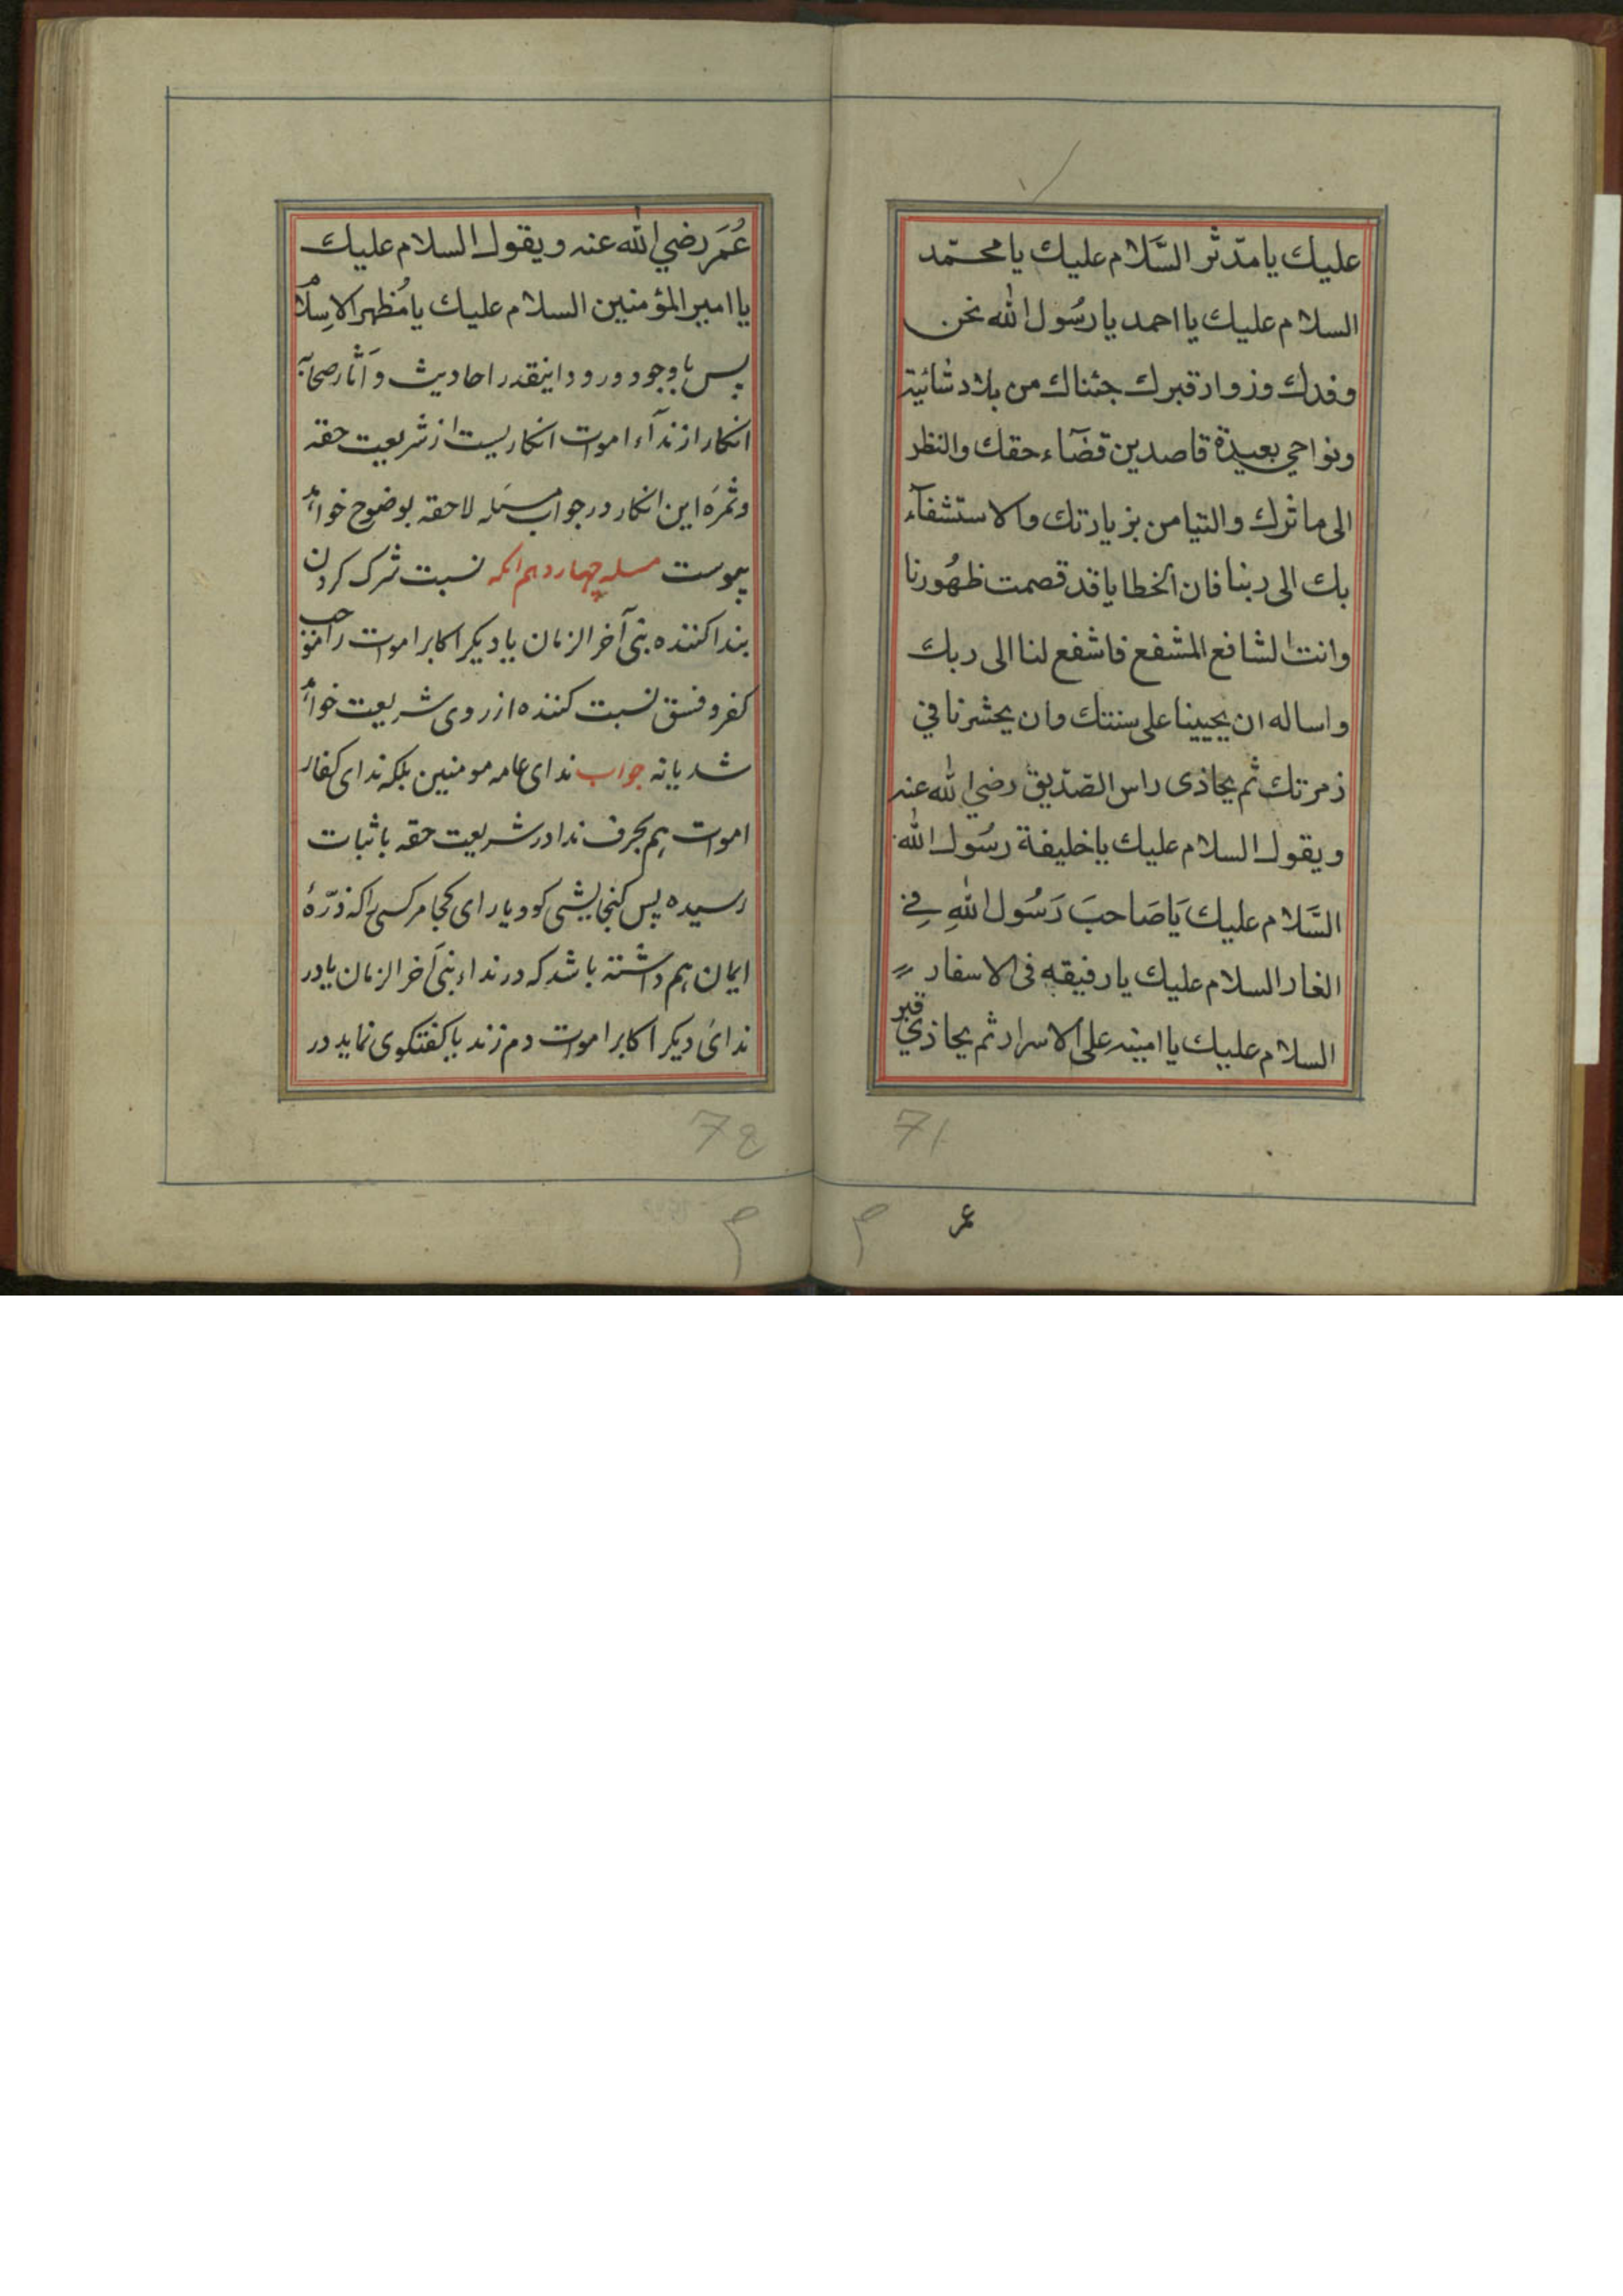 عليك يا مدّثر السَّلام عليك يا محمّد
السلام عليك يا احمد يا رسُول الله نحن
وفدك وزوار قبرك جئناك من بلاد شائية
ونواحي بعيدة قاصدين قضآء حقك والنظر
الى ماثرك والتيامن بزيارتك والاستشفآء
بك الى ربنا فان الخطايا قد قصمت ظهُورنا
وانت الشافع المشفع فاشفع لنا الى ربك
واساله ان يحيينا على سنتك وان يحشرنا في
زمرتك ثم يحاذى راس الصّديق رضي الله عنه
ويقول السلام عليك يا خليفة رسُول الله
السَّلام عليك يَا صَاحبَ رَسُول اللهِ فِي
الغار السلام عليك يا رفيقه فى الاسفار
السلام عليك يا امينه على الاسرار ثم يحاذي قبر
71
عمر
عُمَر رضي الله عنه ويقول السلام عليك
يا امير المؤمنين السلام عليك يا مُظهر الاسِلام
پس باوجود ورود اينقدر احاديث و آثار صحابه
انكار از ندآء اموات انكاريست از شريعت حقه
وثمرَه اين انكار در جواب مسَله لاحقه بوضوح خواهد
پيوست مسله چهاردهم انكه نسبت شرك كردن
بندا كننده نبَى آخر الزمان يا ديكر اكابر اموات را موجب
كفر و فسق نسبت كننده از روى شريعت خواهد
شد يا نه جواب نداى عامه مومنين بلكه نداى كفار
اموات هم بحرف ندا در شريعت حقه باثبات
رسيده پس كنجايشى كو و ياراى كجا مر كسى را كه ذرّهٔ
ايمان هم داشته باشد كه در نداء نبَى آخر الزمان يا در
نداىٔ ديكر اكابر اموات دم زند يا كفتكوى نمايد در
78